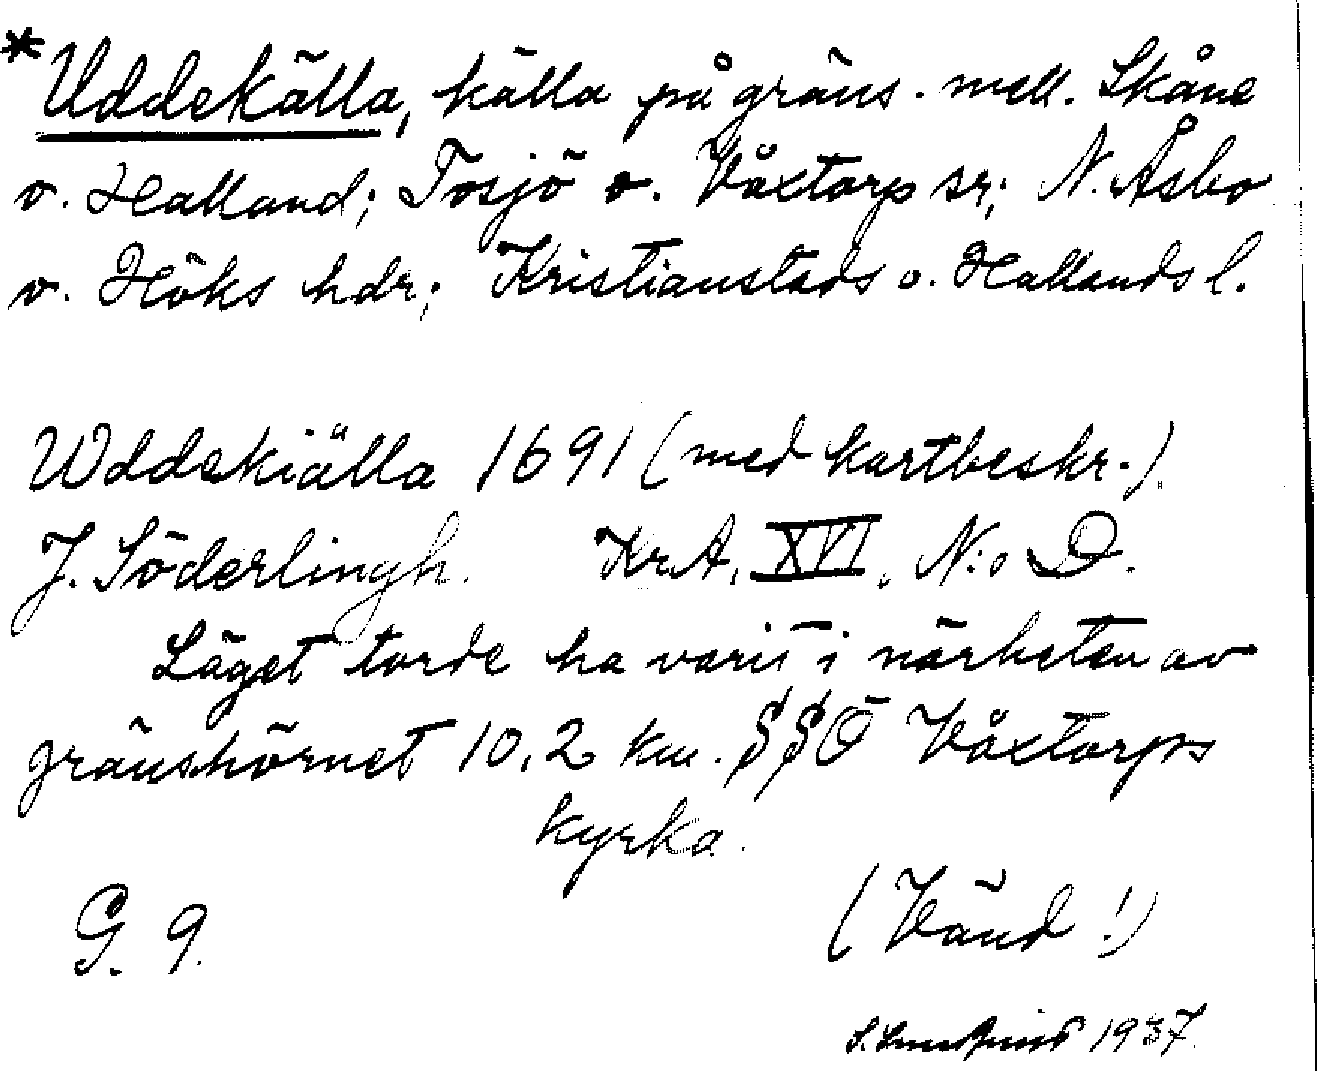 *Uddekälla, källa på gräns. mell. Skåne
o. Halland; Tosjö o. Våxtorp sr; N. Åsbo
o. Höks hdr; Kristianstads o. Hallands l.
Wddekiälla 1691 (med kartbeskr.)
J. Söderlingh. KrA, XVI, N:o D.
Läget torde ha varit i närheten av
gränshörnet 10,2 km. SSÖ Våxtorps
kyrka.
G. 9.
(Vänd!)
1937.